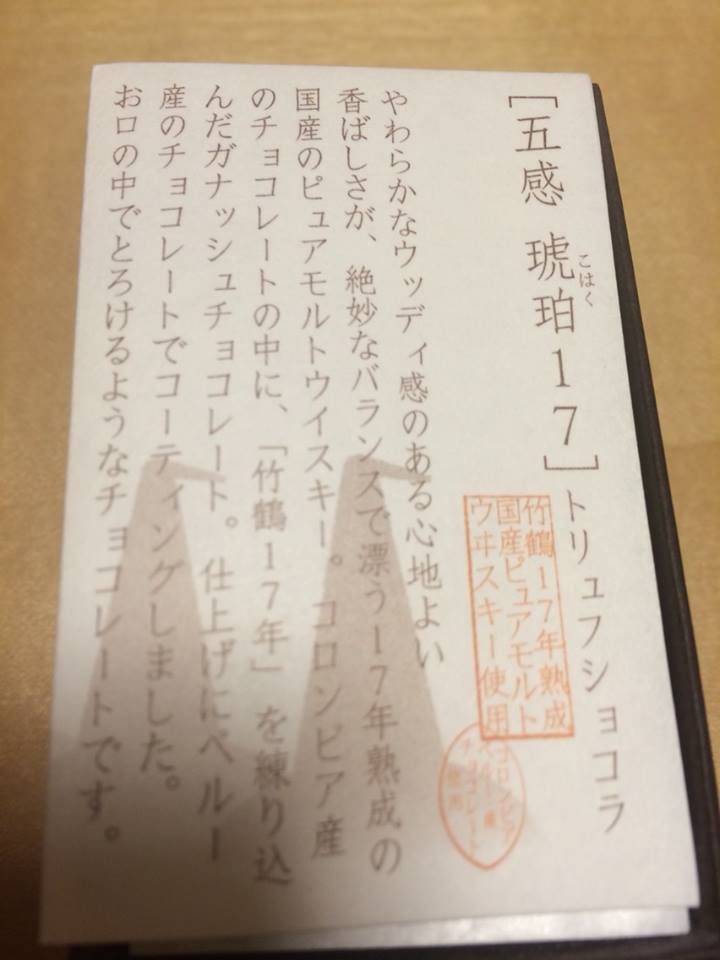 ［五感 琥珀17］トリュフショコラ
こはく
竹鶴17年熟成
国産ピュアモルト
ウヰスキー使用
コロンビア
ペルー産
チョコレート
使用
やわらかなウッディ感のある心地よい
香ばしさが、絶妙なバランスで漂う17年熟成の
国産のピュアモルトウイスキー。コロンビア産
のチョコレートの中に、「竹鶴17年」を練り込
んだガナッシュチョコレート。仕上げにペルー
産のチョコレートでコーティングしました。
お口の中でとろけるようなチョコレートです。